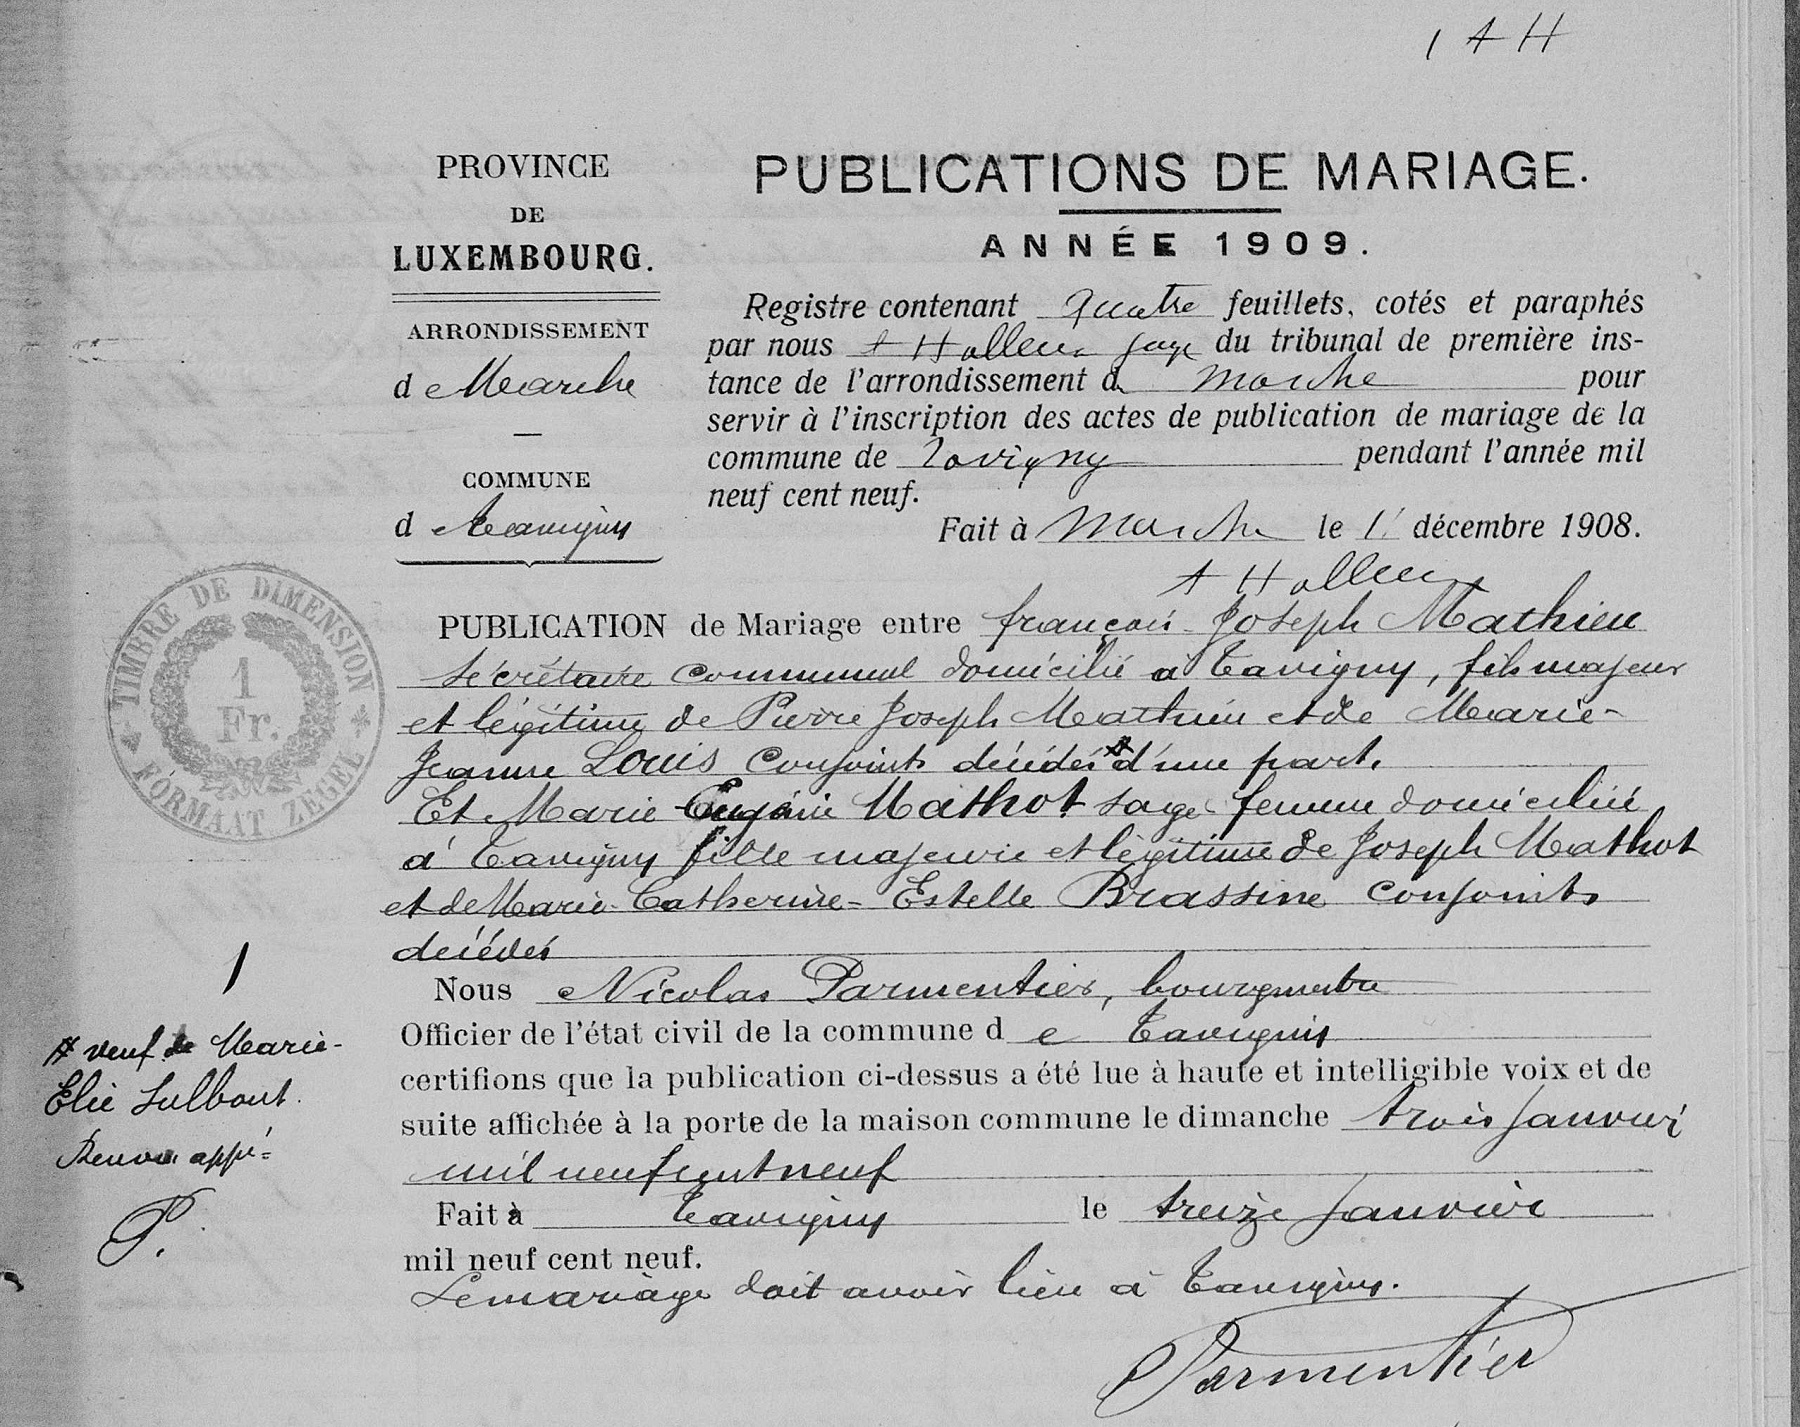 1 A H
PROVINCE
DE
LUXEMBOURG.
ARRONDISSEMENT
d e Marche
COMMUNE
d e Tavigny
PUBLICATIONS DE MARIAGE.
ANNÉE 1909.
Registre contenant quatre feuillets, cotés et paraphés
par nous A Halleux juge du tribunal de première ins-
tance de l'arrondissement de Marche pour
servir à l'inscription des actes de publication de mariage de la
commune de Tavigny pendant l'année mil
neuf cent neuf.
Fait à Marche le 1' décembre 1908.
A Halleux
TIMBRE DE DIMENSION
1
Fr.
FORMAAT ZEGEL
PUBLICATION de Mariage entre françois-Joseph Mathieu
sécrétaire communal domicilié à Tavigny, fils majeur
et légitime de Pierre Joseph Mathieu et de Marie-
Jeanne Louis conjoints décédés # d'une part.
Et Marie Eugénie Mathot sage femme domiciliée
à Tavigny fille majeure et légitime de Joseph Mathot
et de Marie-Catherine-Estelle Brassine conjoints
décédés
Nous Nicolas Parmentier, bourgmestre
Officier de l'état civil de la commune d e Tavigny
certifions que la publication ci-dessus a été lue à haute et intelligible voix et de
suite affichée à la porte de la maison commune le dimanche trois janvier
mil neuf cent neuf
Fait à Tavigny le treize janvier
mil neuf cent neuf.
Le mariage doit avoir lieu à Tavigny.
Parmentier
1
# veuf de Marie-
Elie Sulbout.
Renvoi appé=
P.